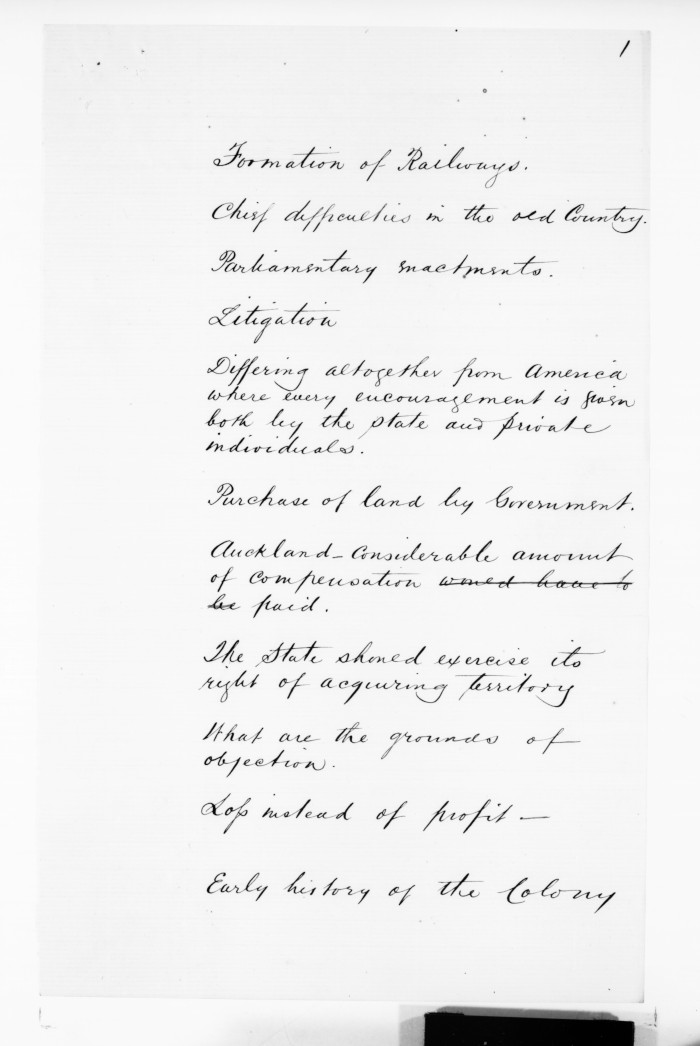 1
Formation of Railways.
Chief difficulties in the old Country.
Parliamentary enactments.
Litigation
Differing altogether from America
where every encouragement is given
both by the State and private
individuals.
Purchase of land by Government.
Auckland - Considerable amount
of compensation would have to
be paid.
The State should exercise its
right of acquiring territory
What are the grounds of
objection.
Loss instead of profit —
Early history of the Colony